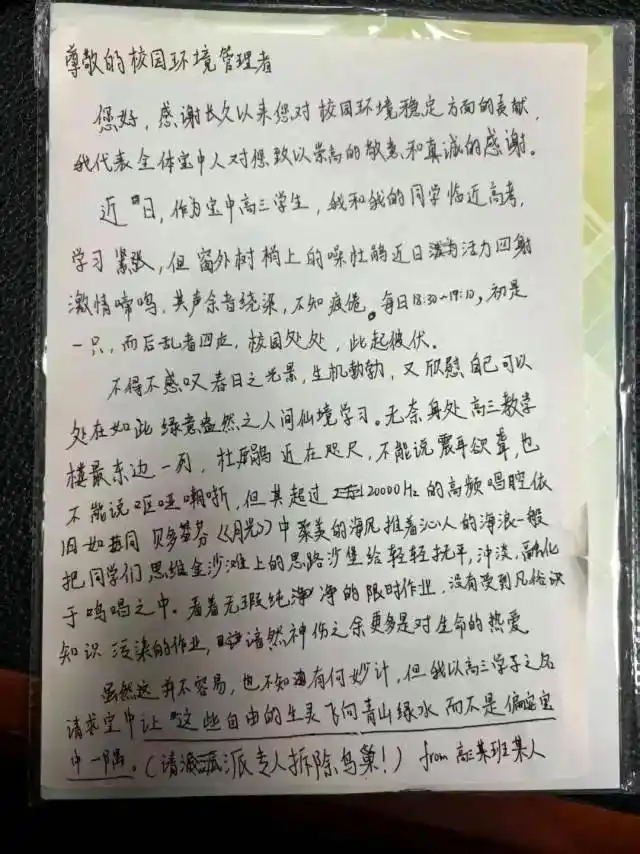 尊敬的校园环境管理者
您好，感谢长久以来您对校园环境稳定方面的贡献，
我代表全体宝中人对您致以崇高的敬意和真诚的感谢。
近日，作为宝中高三学生，我和我的同学临近高考，
学习紧张，但窗外树梢上的噪杜鹃近日活力四射
激情啼鸣，其声余音绕梁，不知疲倦。每日18:30~19:10，初是
一只，而后乱者四应，校园处处，此起彼伏。
不得不感叹春日之光景，生机勃勃，又欣慰自己可以
处在如此绿意盎然之人间仙境学习。无奈身处高三教学
楼最东边一列，杜鹃近在咫尺，不能说震耳欲聋，也
不能说呕哑嘲哳，但其超过20000Hz的高频唱腔依
旧如同贝多芬《月光》中聚美的海风推着沁人的海浪一般
把同学们思维金沙滩上的思路沙堡给轻轻抚平，冲淡，融化
于鸣唱之中。看着无瑕纯净的限时作业，没有受到凡俗
知识污染的作业，黯然神伤之余更多是对生命的热爱
虽然这并不容易，也不知有何妙计，但我以高三学子之名
请求宝中让这些自由的生灵飞向青山绿水而不是偏宝
中一隅。（请派专人拆除鸟巢！） from 高三某班某人